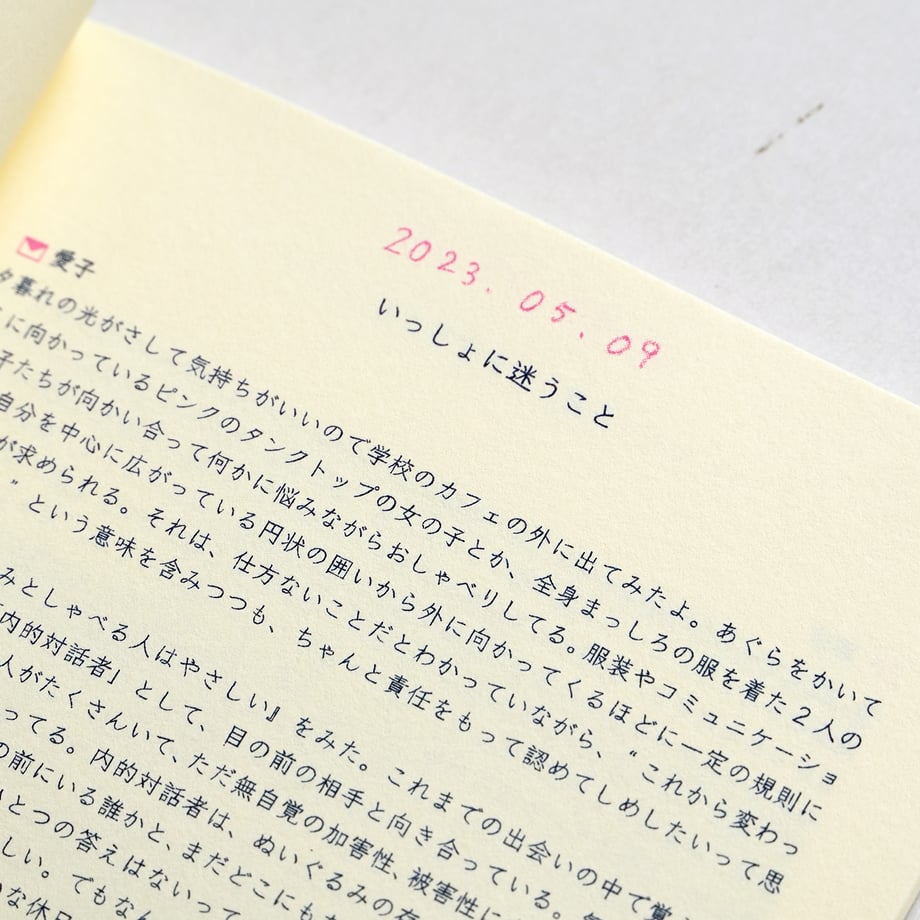 2023.05.09
いっしょに迷うこと
愛子
夕暮れの光がさして気持ちがいいので学校のカフェの外に出てみたよ。あぐらをかいて
に向かっているピンクのタンクトップの女の子とか、全身まっしろの服を着た2人の
子たちが向かい合って何かに悩みながらおしゃべりしてる。服装やコミュニケーショ
自分を中心に広がっている円状の囲いから外に向かってくるほどに一定の規則に
が求められる。それは、仕方ないことだとわかっていながら、“これから変わっ
”という意味を含みつつも、ちゃんと責任をもって認めてしめしたいって思
みとしゃべる人はやさしい』をみた。これまでの出会いの中で
「内的対話者」として、目の前の相手と向き合っている。
人がたくさんいて、ただ無自覚の加害性、被害性に
ってる。内的対話者は、ぬいぐるみの
の前にいる誰かと、まだどこにも
ひとつの答えはないって
しい。でもなん
な休日